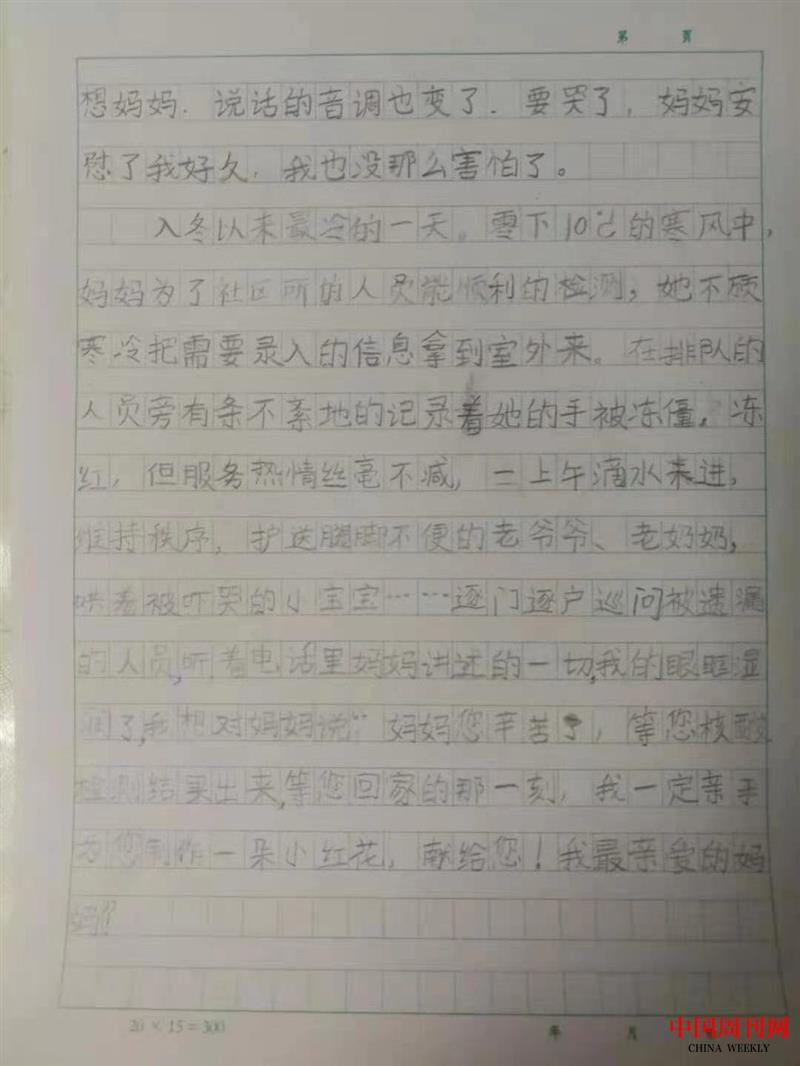 第 页
想妈妈．说话的音调也变了．要哭了，妈妈安
慰了我好久，我也没那么害怕了。
入冬以来最冷的一天。零下10℃的寒风中，
妈妈为了社区所的人员能顺利的检测，她不顾
寒冷把需要录入的信息拿到室外来。在排队的
人员旁有条不紊地的记录着她的手被冻僵，冻
红，但服务热情丝毫不减，一上午滴水未进，
维持秩序，护送腿脚不便的老爷爷、老奶奶，
哄着被吓哭的小宝宝……逐门逐户巡问被遗漏
的人员,听着电话里妈妈讲述的一切,我的眼眶湿
润了,我想对妈妈说“妈妈您辛苦了，等您核酸
检测结果出来,等您回家的那一刻，我一定亲手
为您制作一朵小红花，献给您！我最亲爱的妈
妈！
20 × 15 = 300
年 月
中国周刊网
CHINA WEEKLY